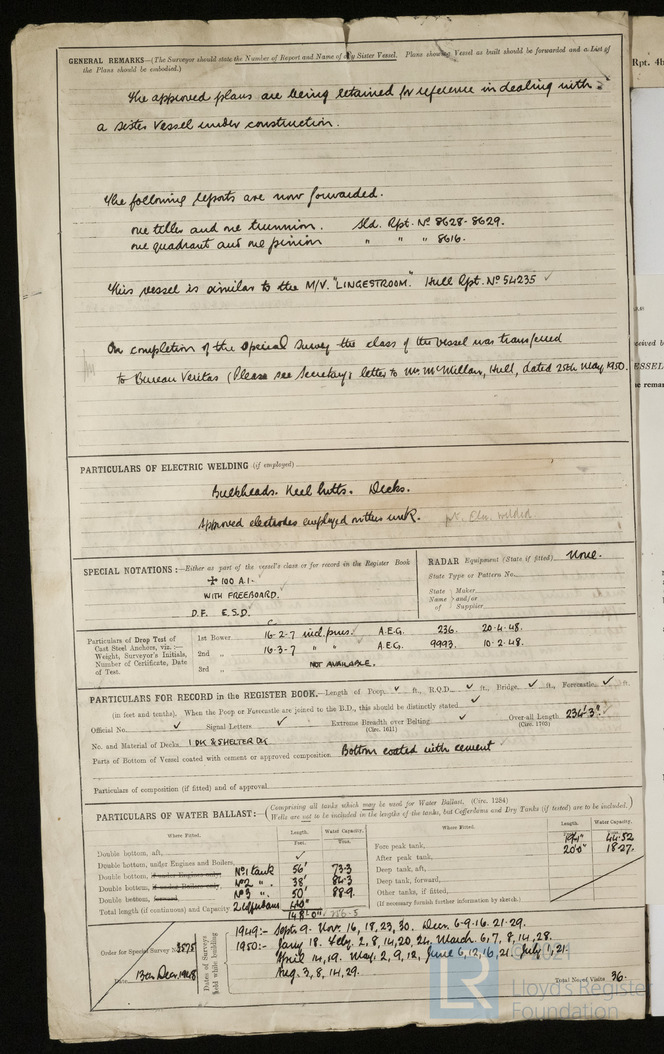 GENERAL REMARKS—(The Surveyor should state the Number of Report and Name of any Sister Vessel. Plans showing Vessel as built should be forwarded and a List of
the Plans should be embodied.)
The approved plans are being retained for reference in dealing with
a sister vessel under construction.
The following reports are now forwarded.
one tiller and one trunnion. Sld. Rpt. No 8628-8629.
one quadrant and one pinion " " " 8616.
This vessel is similar to the M/V. "LINGESTROOM." Hull Rpt. No 54235 ✓
On completion of the special survey the class of the vessel was transferred
to Bureau Veritas (Please see Secretary's letter to Mr. McMillan, Hull, dated 25th May 1950.
PARTICULARS OF ELECTRIC WELDING (if employed)
Bulkheads. Keel butts. Decks.
Approved electrodes employed in this work. pt. Elec. welded.
SPECIAL NOTATIONS:—Either as part of the vessel's class or for record in the Register Book
✠ 100 A.1.
WITH FREEBOARD.
D.F. E.S.D.
RADAR Equipment (State if fitted) None.
State Type or Pattern No.
State Name of Maker and/or Supplier
Particulars of Drop Test of
Cast Steel Anchors, viz.:—
Weight, Surveyor's Initials,
Number of Certificate, Date
of Test.
1st Bower 16-2-7 incl pins. A.E.G. 236. 20-4-48.
2nd " 16-3-7 " " A.E.G. 9993. 10-2-48.
3rd " NOT AVAILABLE.
PARTICULARS FOR RECORD in the REGISTER BOOK.—Length of Poop ✓ ft., R.Q.D. ✓ ft., Bridge ✓ ft., Forecastle ✓ ft.
(in feet and tenths). When the Poop or Forecastle are joined to the B.D., this should be distinctly stated ✓
Official No. ✓ Signal Letters ✓ Extreme Breadth over Belting ✓ Over-all Length 234'3" ✓
(Circ. 1611) (Circ. 1703)
No. and Material of Decks 1 DK & SHELTER DK
Parts of Bottom of Vessel coated with cement or approved composition Bottom coated with cement ✓
Particulars of composition (if fitted) and of approval
PARTICULARS OF WATER BALLAST:—(Comprising all tanks which may be used for Water Ballast, (Circ. 1284)
Wells are not to be included in the lengths of the tanks, but Cofferdams and Dry Tanks (if tested) are to be included.)
Where Fitted. Length. Water Capacity. Where Fitted. Length. Water Capacity.
Feet. Tons.
Double bottom, aft, ✓
Double bottom, under Engines and Boilers,
Double bottom, if under Engines only, No 1 tank 56' 73.3
Double bottom, if under Boilers only, No 2 " 38' 84.3
Double bottom, forward No 3 " 50' 88.9
2 cofferdams 4'0"
Total length (if continuous) and Capacity 148'0"
Fore peak tank, 44.52
After peak tank, 20'0" 18.27
Deep tank, aft,
Deep tank, forward,
Other tanks, if fitted,
(If necessary furnish further information by sketch.)
Order for Special Survey No. 3575
Date 13th Dec. 1948
Dates of Surveys held while building
1949:- Sept. 9. Nov. 16, 18, 23, 30. Dec. 6.9.16.21.29.
1950:- Jany 18. Feby. 2, 8, 14, 20, 24. March. 6, 7, 8, 14, 28.
April 14, 19. May. 2, 9, 12, June 6, 12, 16, 21. July 1, 21.
Aug. 3, 8, 14, 29.
Total No. of Visits 36.
Rpt. 4b
LR
Lloyd's Register
Foundation